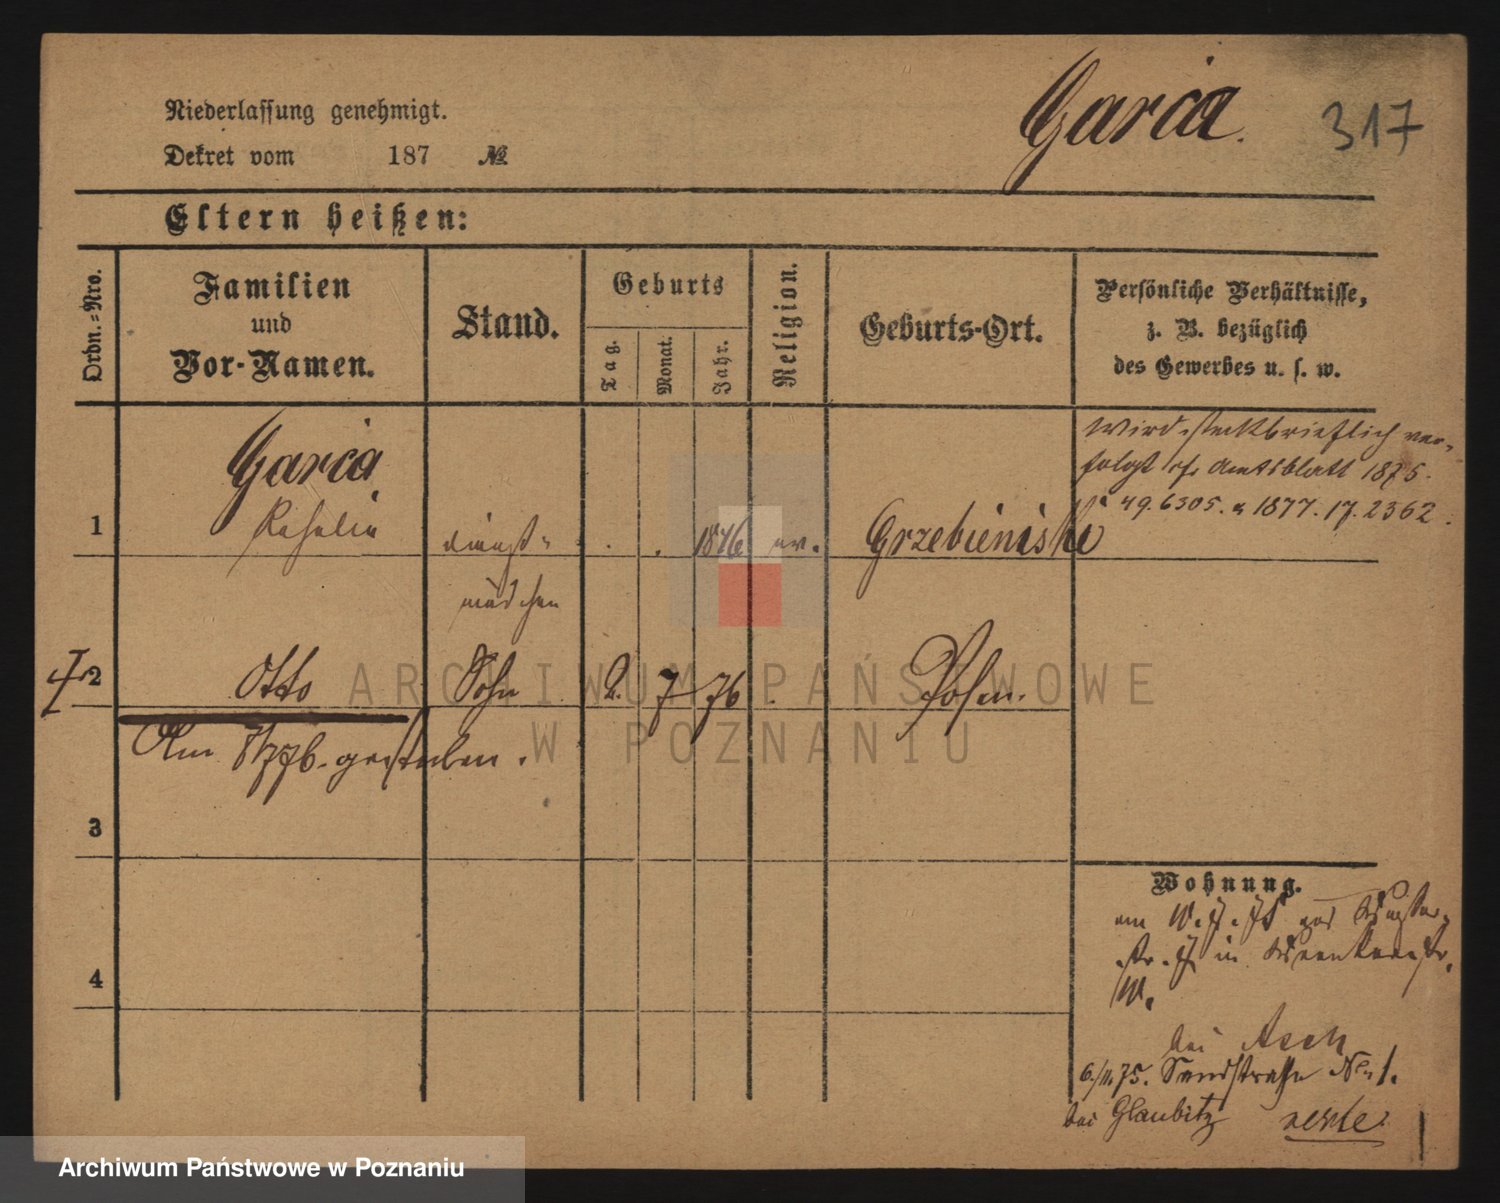 Niederlassung genehmigt.
Dekret vom 187 №
Garcia.
317
Eltern heißen:
Ordn.-Nro.
Familien
und
Vor-Namen.
Stand.
Geburts
Tag.
Monat.
Jahr.
Religion.
Geburts-Ort.
Persönliche Verhältnisse,
z. B. bezüglich
des Gewerbes u. s. w.
Wird steckbrieflich ver-
folgt cf. Amtsblatt 1875.
49. 6305. 1877. 17. 2362.
1
Garcia
dienst-
1846
ev.
Grzebienisko
mädchen
2
Otto
Sohn
2.
7
76
Posen.
Am 8/7 76. gestorben.
3
4
Wohnung.
in
bei Asch
6/11. 75. Sandstraße No 1.
bei Glaubitz
ARCHIWUM PAŃSTWOWE
W POZNANIU
Archiwum Państwowe w Poznaniu